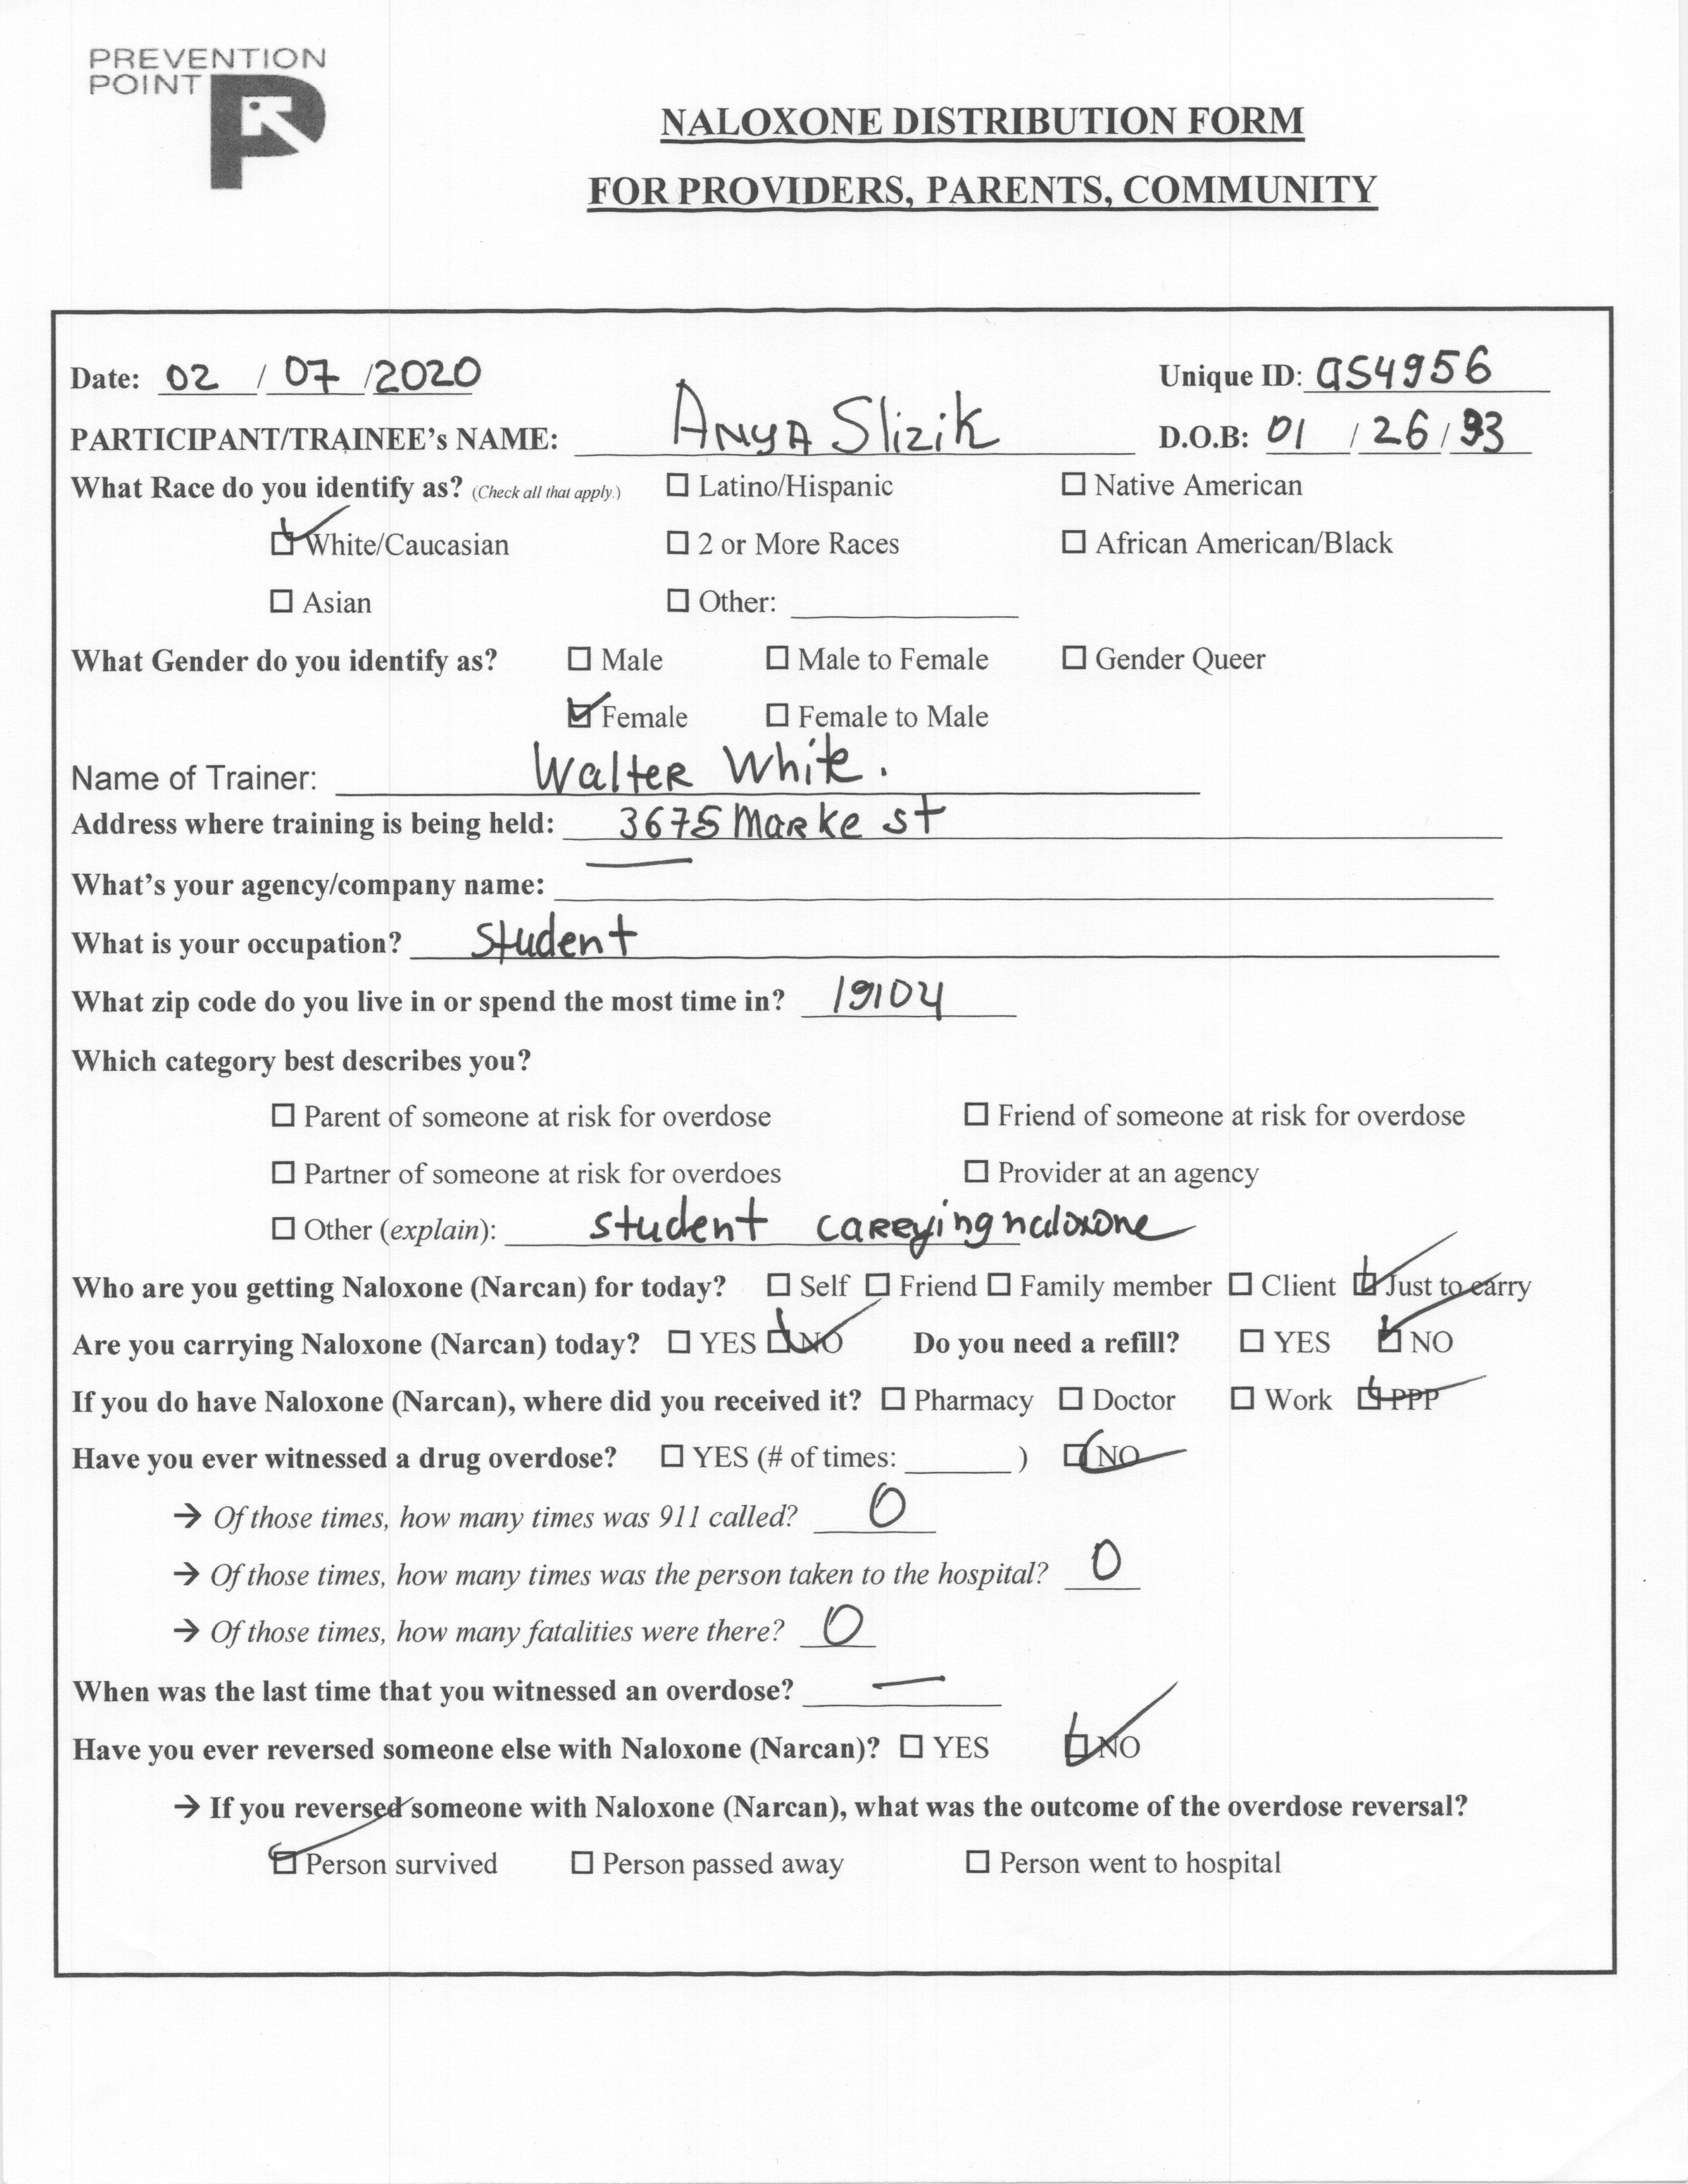 PREVENTION
POINT
NALOXONE DISTRIBUTION FORM
FOR PROVIDERS, PARENTS, COMMUNITY
Date: 02 / 07 / 2020 Unique ID: as4956
PARTICIPANT/TRAINEE's NAME: Anya Slizik D.O.B: 01 / 26 / 93
What Race do you identify as? (Check all that apply.) ☐ Latino/Hispanic ☐ Native American
☑ White/Caucasian ☐ 2 or More Races ☐ African American/Black
☐ Asian ☐ Other: ____
What Gender do you identify as? ☐ Male ☐ Male to Female ☐ Gender Queer
☑ Female ☐ Female to Male
Name of Trainer: Walter White.
Address where training is being held: 3675 Marke st
What's your agency/company name: —
What is your occupation? Student
What zip code do you live in or spend the most time in? 19104
Which category best describes you?
☐ Parent of someone at risk for overdose ☐ Friend of someone at risk for overdose
☐ Partner of someone at risk for overdoes ☐ Provider at an agency
☐ Other (explain): student carrying naloxone
Who are you getting Naloxone (Narcan) for today? ☐ Self ☐ Friend ☐ Family member ☐ Client ☑ Just to carry
Are you carrying Naloxone (Narcan) today? ☐ YES ☑ NO Do you need a refill? ☐ YES ☑ NO
If you do have Naloxone (Narcan), where did you received it? ☐ Pharmacy ☐ Doctor ☐ Work ☑ PPP
Have you ever witnessed a drug overdose? ☐ YES (# of times: ____ ) ☑ NO
→ Of those times, how many times was 911 called? 0
→ Of those times, how many times was the person taken to the hospital? 0
→ Of those times, how many fatalities were there? 0
When was the last time that you witnessed an overdose? —
Have you ever reversed someone else with Naloxone (Narcan)? ☐ YES ☑ NO
→ If you reversed someone with Naloxone (Narcan), what was the outcome of the overdose reversal?
☑ Person survived ☐ Person passed away ☐ Person went to hospital